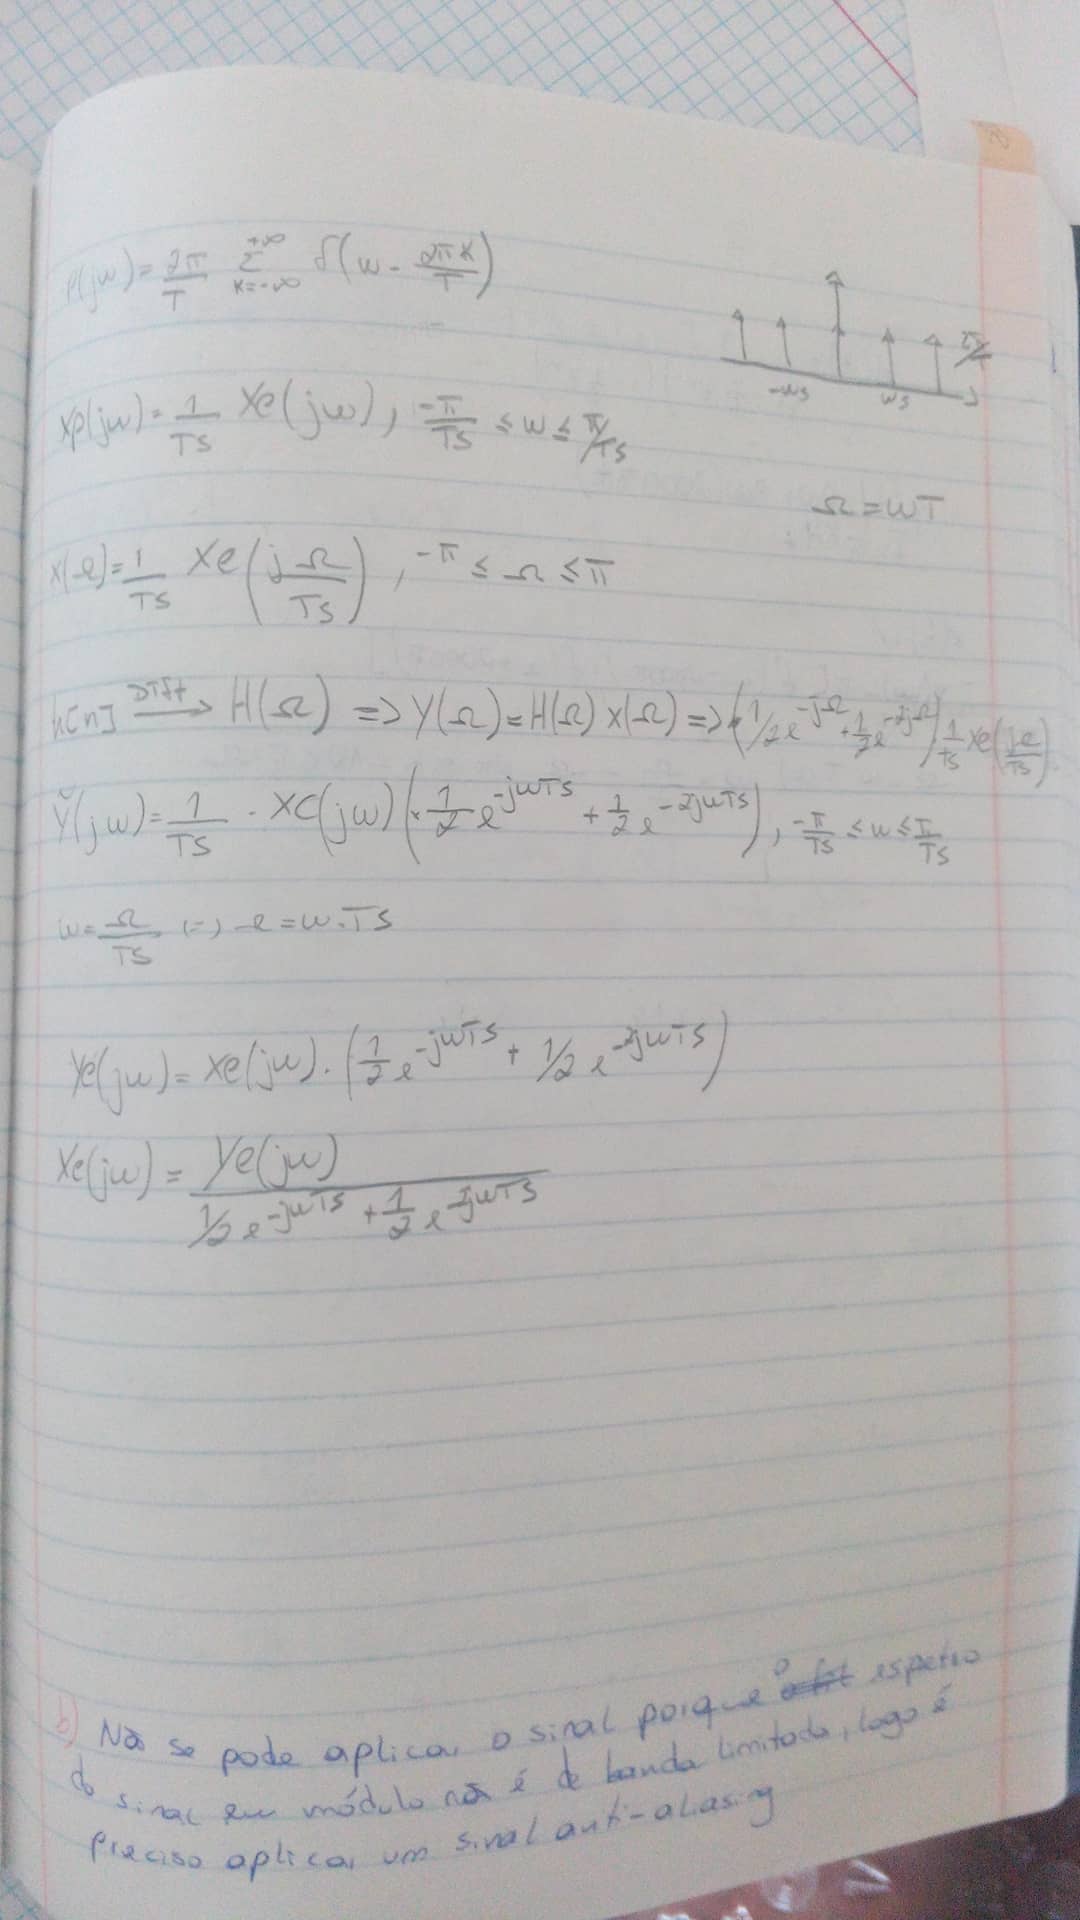 P(jw) = 2π/T Σ k=-∞ +∞ δ(w - 2πk/T)
-ws ws
Xp(jw) = 1/Ts Xc(jw), -π/Ts ≤ w ≤ π/Ts
Ω = wT
X(Ω) = 1/Ts Xc(jΩ/Ts), -π ≤ Ω ≤ π
h[n] DTft → H(Ω) => Y(Ω) = H(Ω) X(Ω) => (1/2 e^-jΩ + 1/2 e^-2jΩ) 1/Ts Xc(jΩ/Ts)
Y(jw) = 1/Ts . Xc(jw) (1/2 e^-jwTs + 1/2 e^-2jwTs), -π/Ts ≤ w ≤ π/Ts
w = Ω/Ts (=) Ω = w.Ts
Yc(jw) = Xc(jw) . (1/2 e^-jwTs + 1/2 e^-2jwTs)
Xc(jw) = Yc(jw) / (1/2 e^-jwTs + 1/2 e^-2jwTs)
b) Não se pode aplicar o sinal porque o espetro
do sinal em módulo não é de banda limitada, logo é
preciso aplicar um sinal anti-aliasing